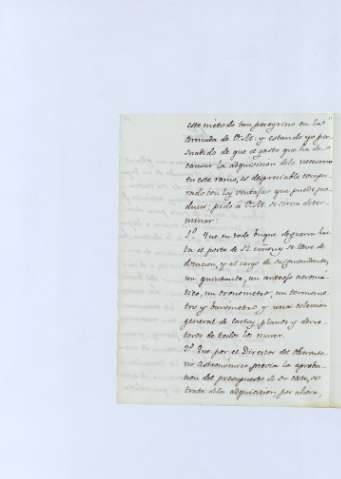 este método tan peregrino en la
armada de V. M.: y estando yo per
suadido de que el gasto que ha de
causar la adquisicion de lo necesario
en este ramo, es despreciable compa
rado con las ventajas que puede pro
ducir; pido á V. M. se sirva deter
minar:
1.º Que en todo buque de guerra has
ta el porte de 12 cañones se lleve de
dotacion, y al cargo de su comandante,
un quintante, un anteojo acromá
tico, un cronómetro, un termome
tro y barómetro y una coleccion
general de cartas, planos y derro
teros de todos los mares.
2.º Que por el Director del Observato
rio astronómico, previa la aproba
cion del presupuesto de su costo, se
trate de la adquisicion, por ahora,